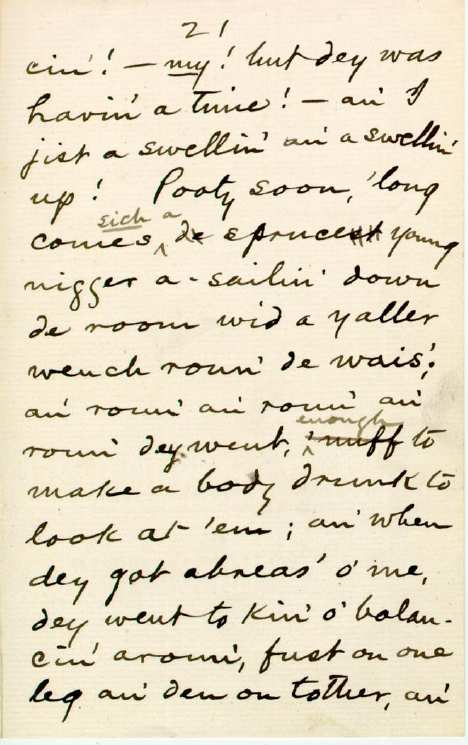 21
cin'! — my! but dey was
havin' a time! — an' I
jist a swellin' an' a swellin'
up! Pooty soon, 'long
sich a
comes de sprucest young
nigger a-sailin' down
de room wid a yaller
wench roun' de wais';
an' roun' an' roun' an'
enough
roun' dey went, 'nuff to
make a body drunk to
look at 'em; an' when
dey got abreas' o' me,
dey went to kin' o' balan-
cin' aroun', fust on one
leg an' den on tother, an'